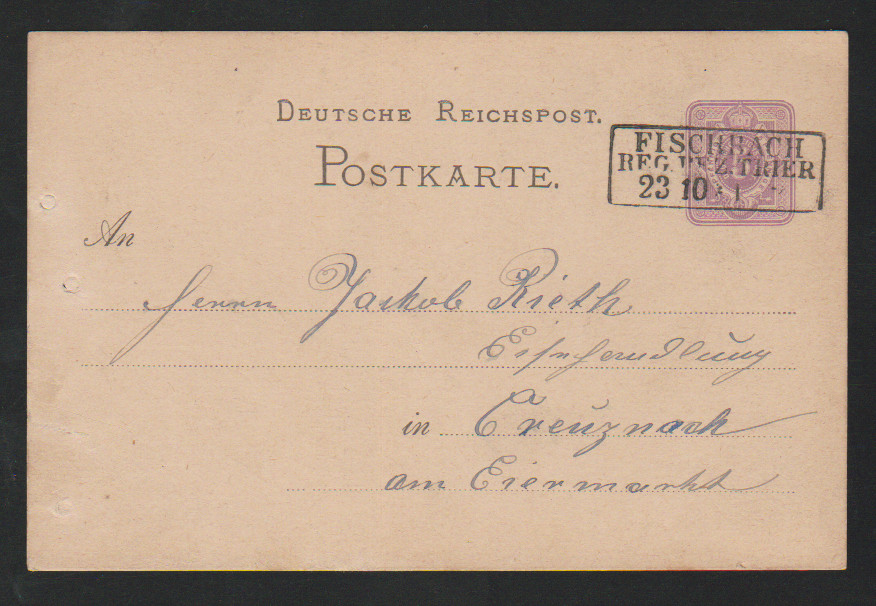 DEUTSCHE REICHSPOST.
POSTKARTE.
FISCHBACH
REG. BEZ. TRIER
23 10
An
Herrn Jackob Rieth
Eisenhandlung
in Creuznach
am Eiermarkt